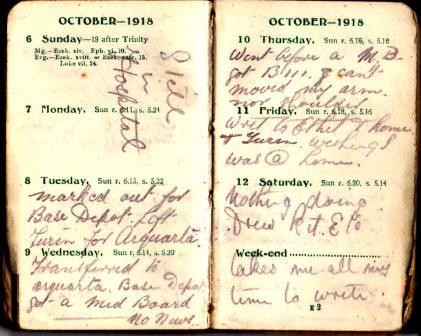 OCTOBER—1918
6 Sunday—19 after Trinity
Mg.—Ezek. xiv. Eph. vi. 10.
Evg.—Ezek. xviii. or Ezek. xxiv. 15.
Luke vii. 24.
Still
in
Hospital
7 Monday. Sun r. 6.11, s. 5.24
8 Tuesday. Sun r. 6.13, s. 5.22
marked out for
Base Depot. Left
Turin for Arquarta.
9 Wednesday. Sun r. 6.14, s. 5.20
Transferred to
arquarta. Base Depot
got a Med Board
No News.
OCTOBER—1918
10 Thursday. Sun r. 6.16, s. 5.18
Went before a M.B.
got B 111. & cant
moved my arm.
nor shoulder
11 Friday. Sun r. 6.18, s. 5.16
Writ to Ethel & home
& Turin wishing I
was @ home.
12 Saturday. Sun r. 6.20, s. 5.14
Nothing doing
Drew Kit. Etc
Week-end
takes me all my
time to write.
E 2